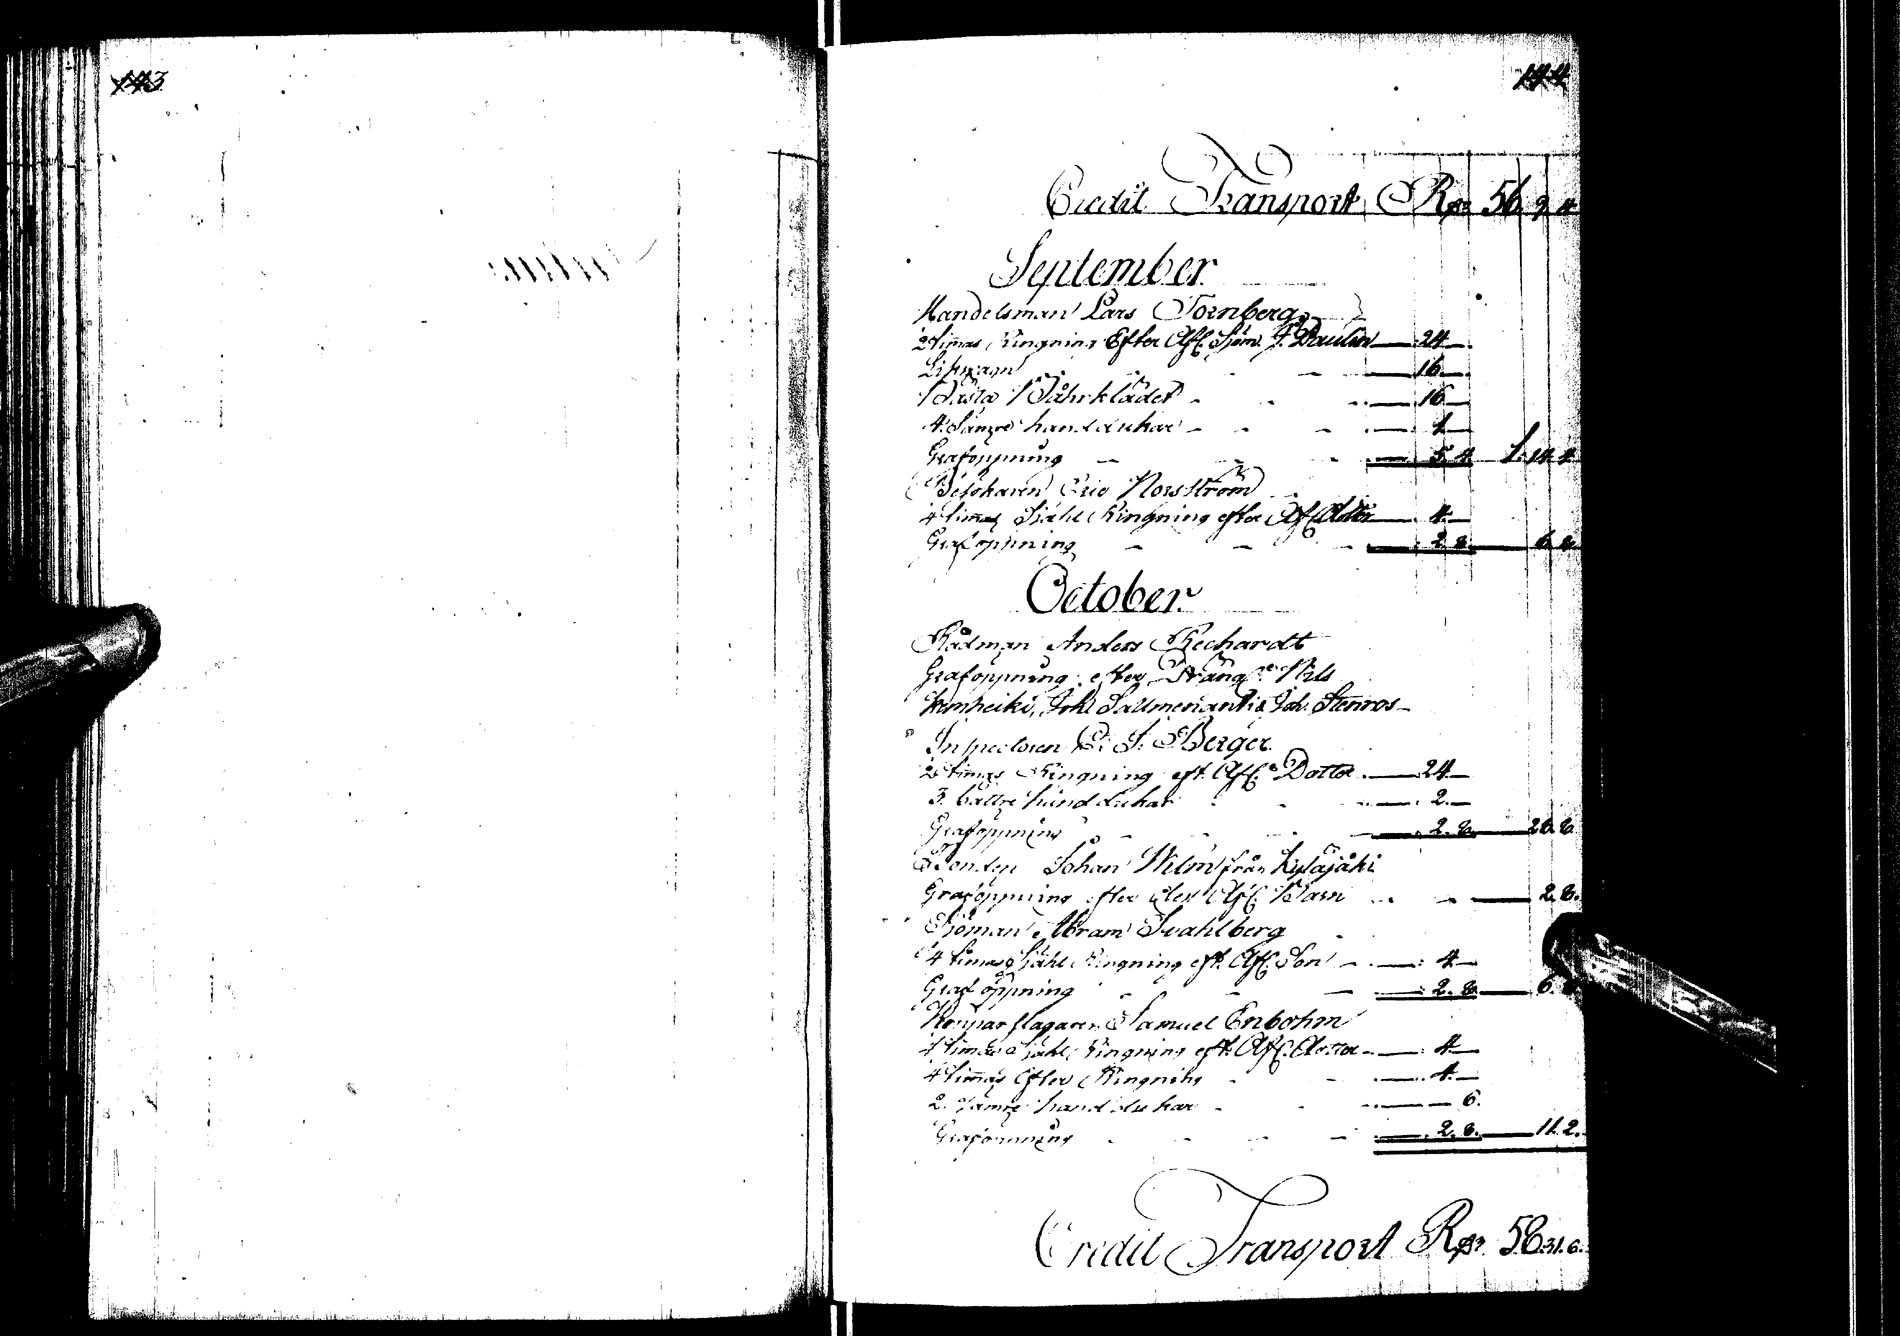 143
144
Credit Transport Rdr 56. 9. 4
September.
Handelsman Lars Tornberg
2 Timas Ringning Efter Afl. Sjöm. J. Paulin 24
Likvagn 16
Bästa Bårklädet 16
4. Sämre handdukar 1
Graföppning 5. 4. 1. 14. 4
Eric Norström
4 timas Själ Ringning efter Afl. dotter 4
Graföppning 2. 8. 6. 8
October.
Rådman Anders Rechardt
Graföppning efter Dräng. Nils
Joh. Stenros
Inspectoren C: J: Berger.
2 timas Ringning eft. Afl. Dotter 24
3. bättre handdukar 2
Graföppning 2. 8. 28. 8
Bonden Johan Wilm från Kyläjäki
Graföppning efter dess Afl. Barn 2. 8.
Sjöman Abram Svahlberg
4 timas Själ Ringning eft. Afl. Son 4
Graföppning 2. 8. 6.
Kopparslagaren Samuel Enbohm
4 timas Själ Ringning eft. Afl. dotter 4
4 timas Efter Ringning 4
2. Sämre handdukar 6.
Graföppning 2. 8. 11. 2.
Credit Transport Rdr 58. 31. 6.